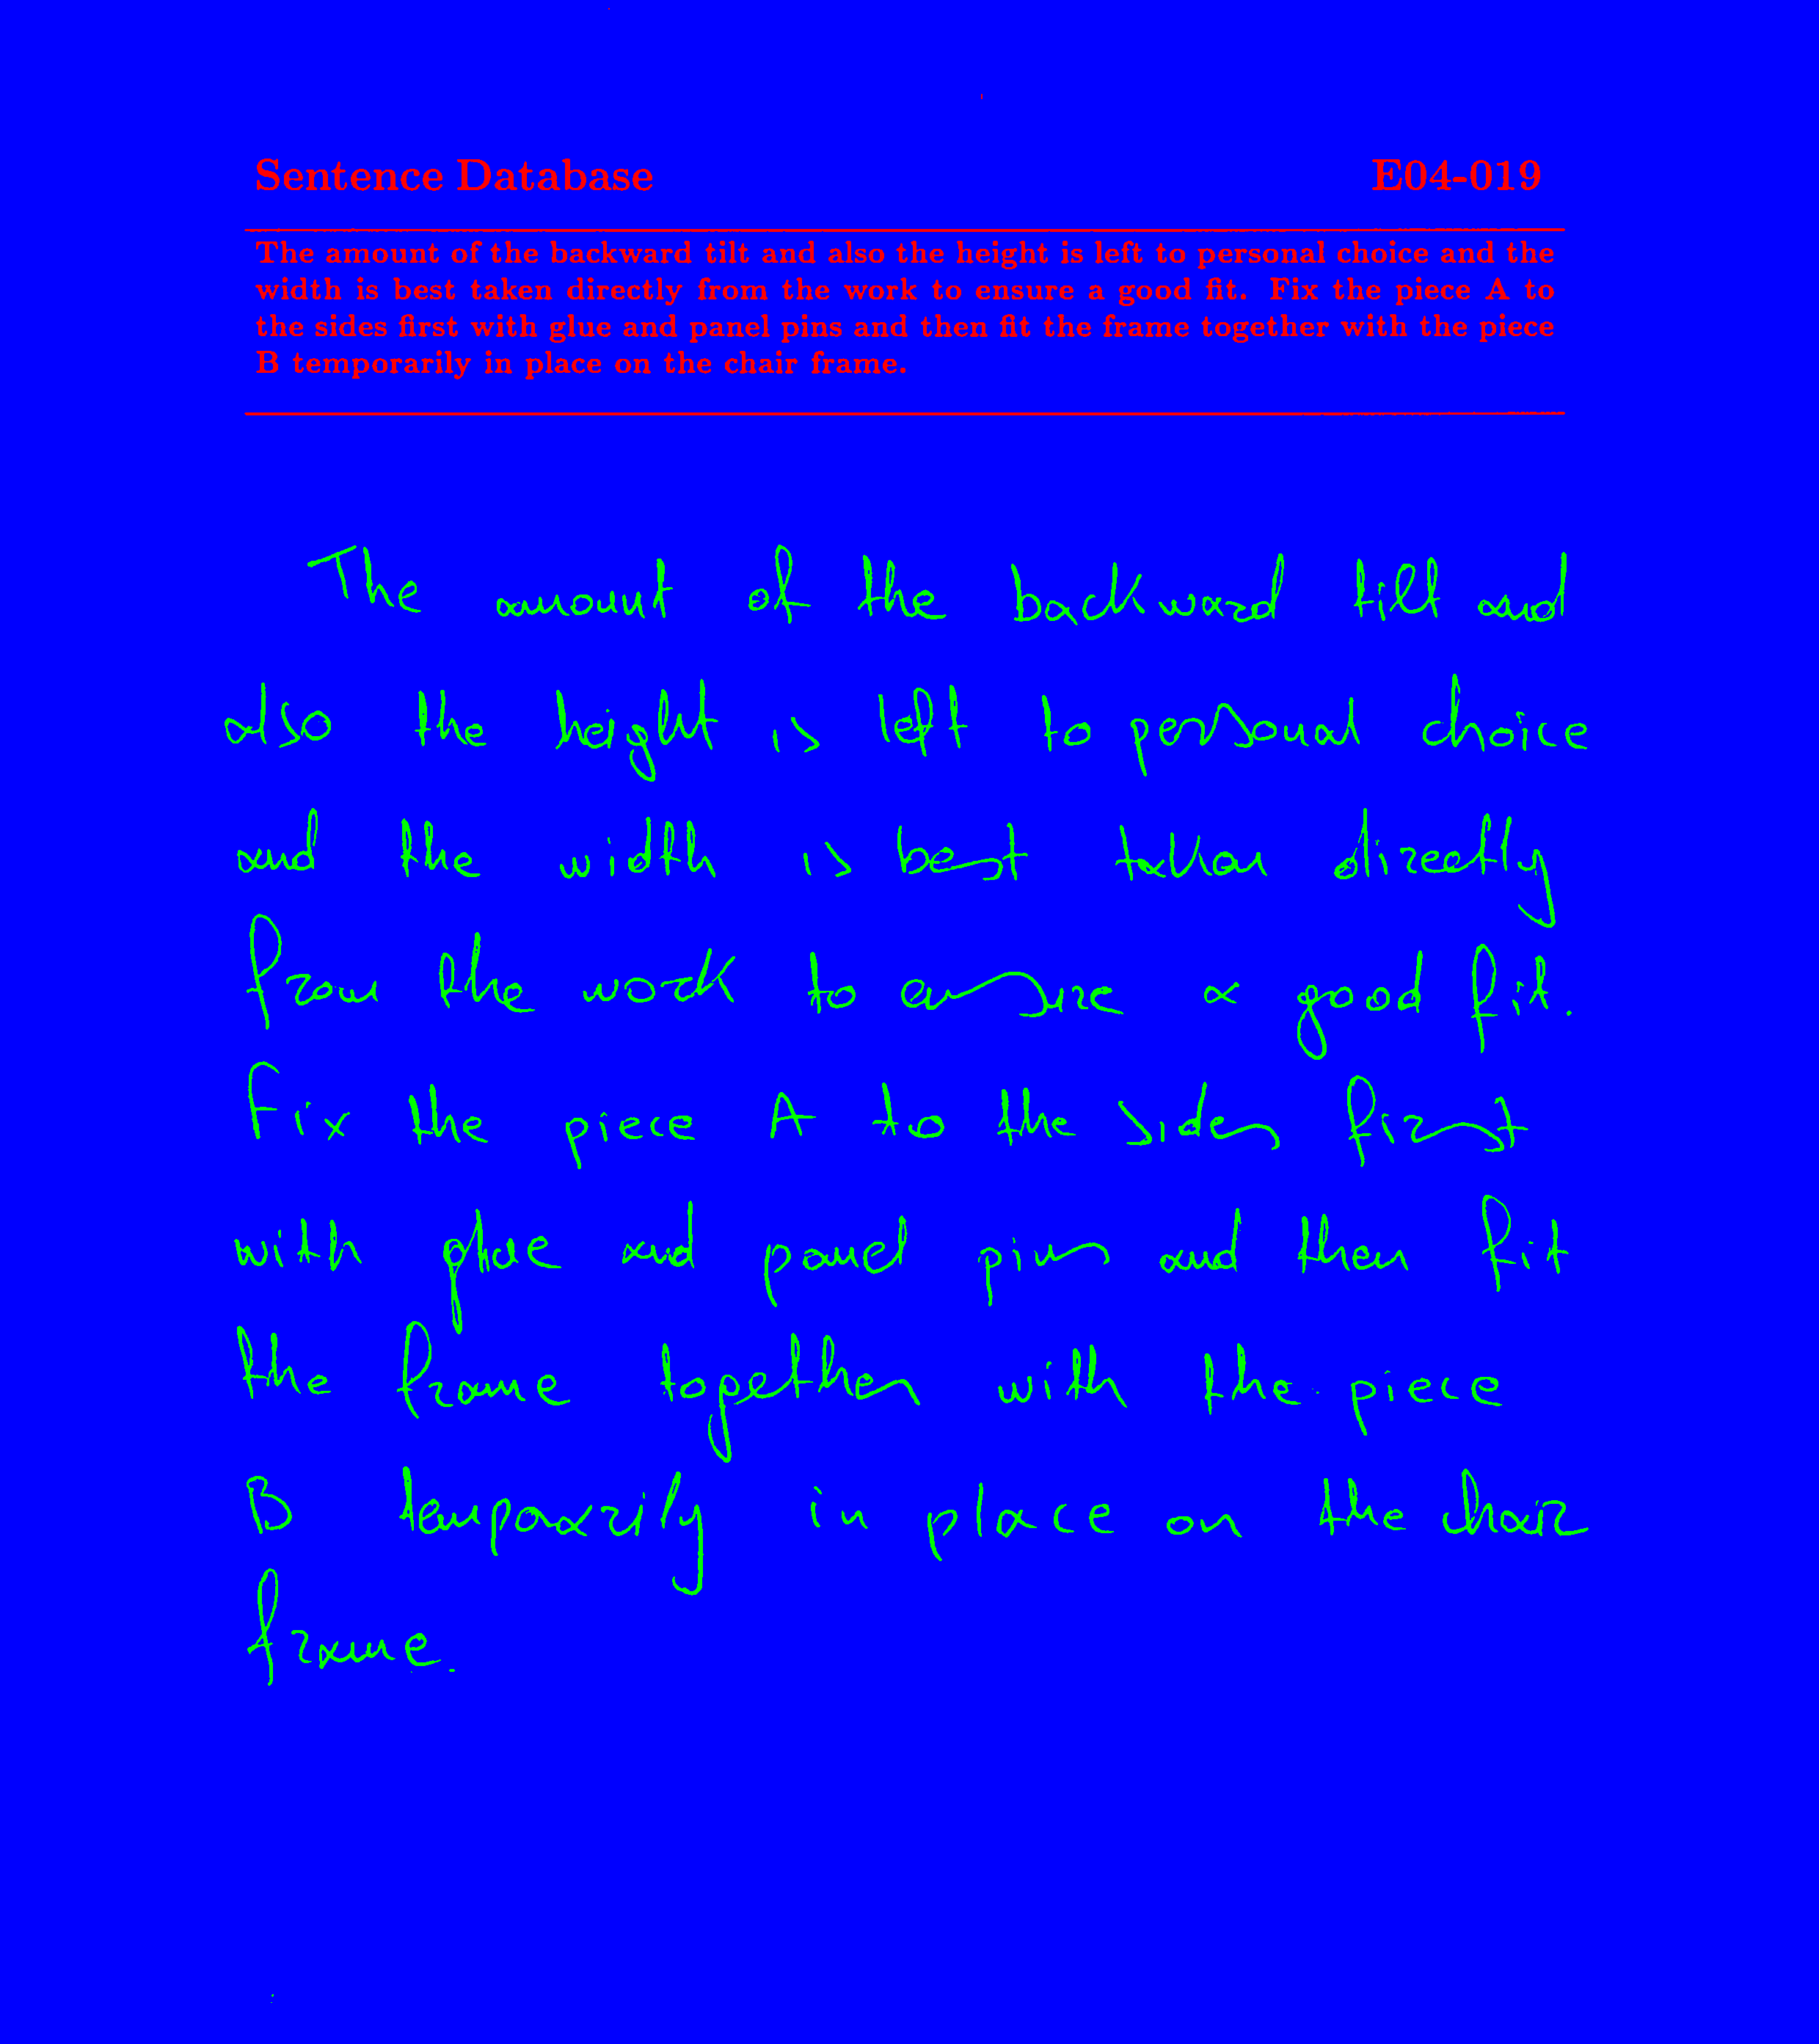 Sentence Database E04-019
The amount of the backward tilt and also the height is left to personal choice and the
width is best taken directly from the work to ensure a good fit. Fix the piece A to
the sides first with glue and panel pins and then fit the frame together with the piece
B temporarily in place on the chair frame.
The amount of the backward tilt and
also the height is left to personal choice
and the width is best taken directly
from the work to ensure a good fit.
Fix the piece A to the sides first
with glue and panel pins and then fit
the frame together with the piece
B temporarily in place on the chair
frame.